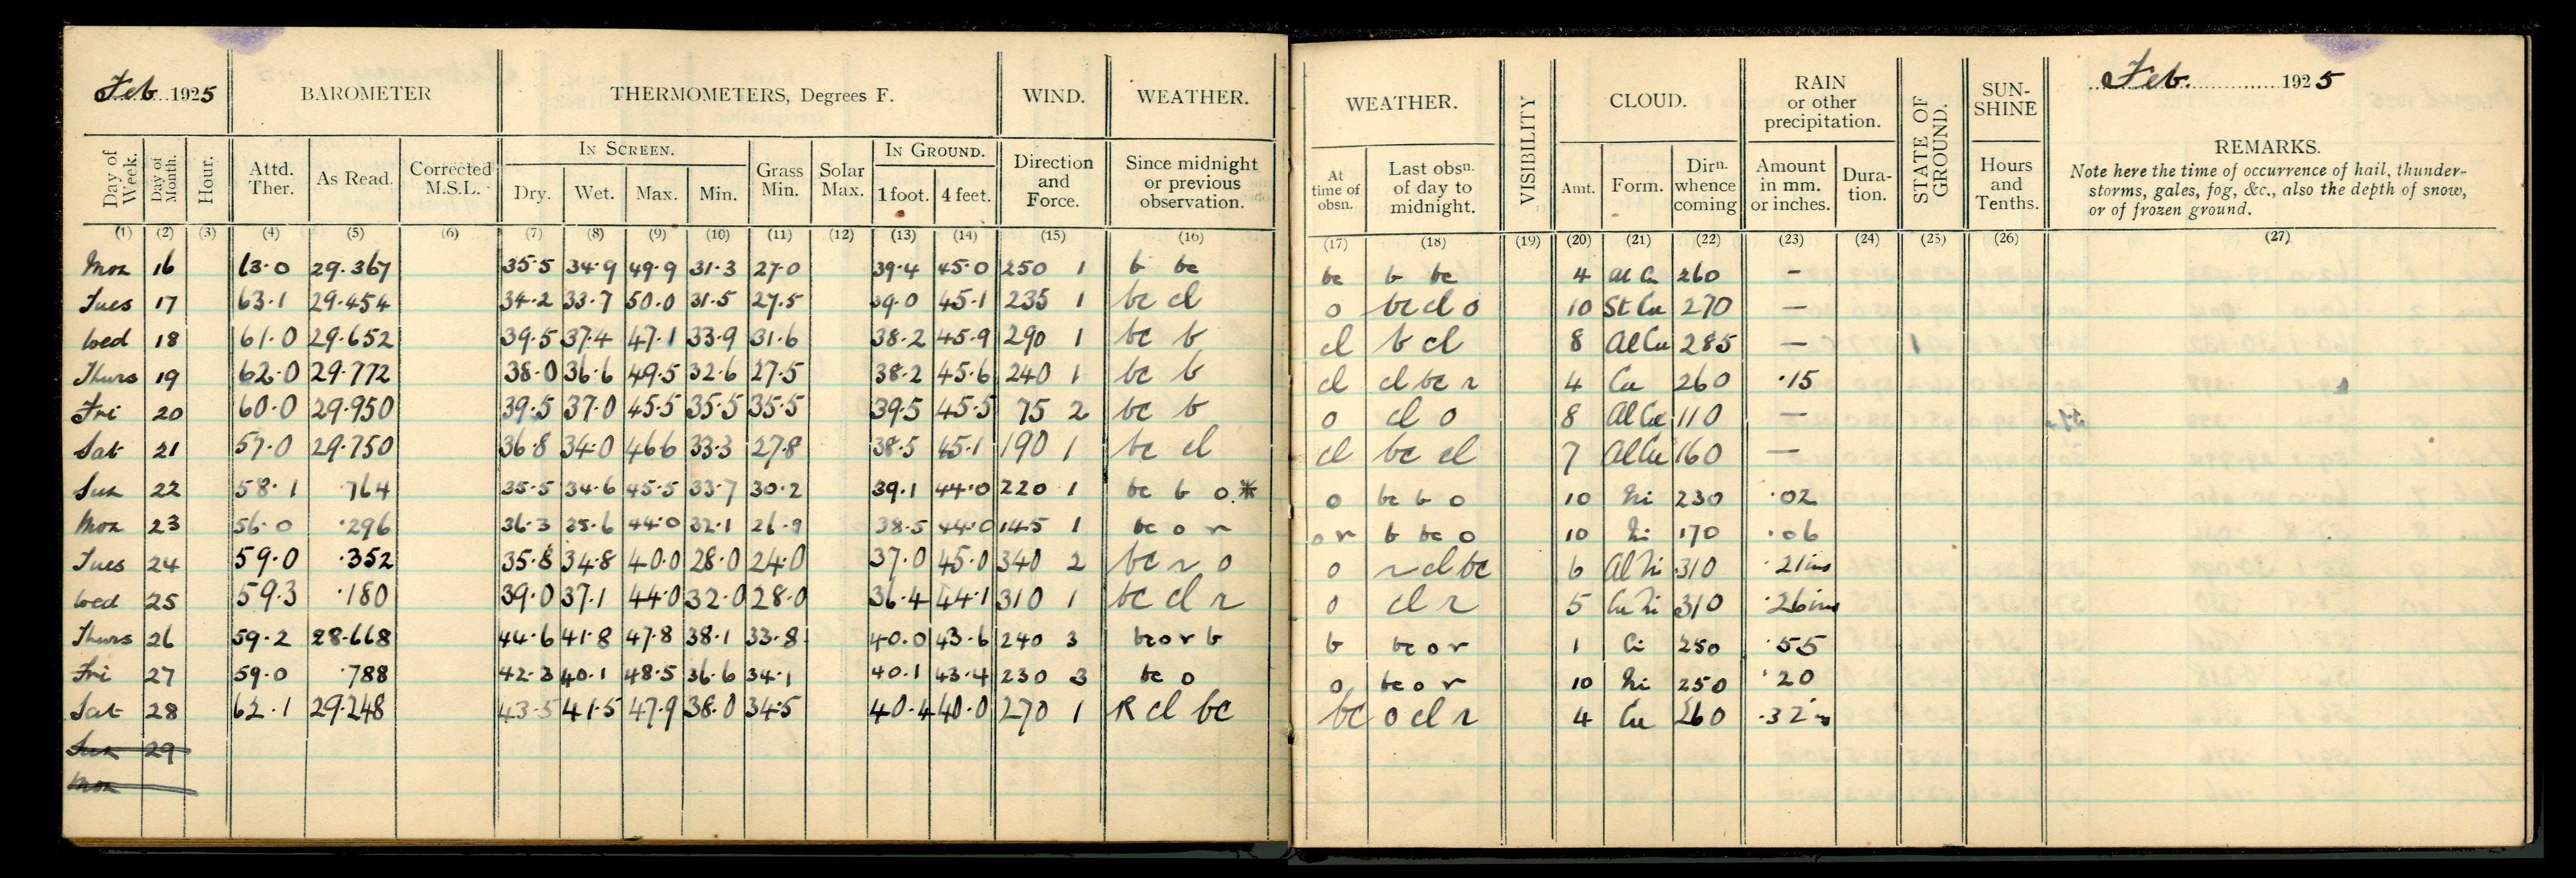 Feb 1925 BAROMETER THERMOMETERS, Degrees F. WIND. WEATHER.
Day of Week. Day of Month. Hour. Attd. Ther. As Read. Corrected M.S.L. IN SCREEN. Dry. Wet. Max. Min. Grass Min. Solar Max. IN GROUND. 1 foot. 4 feet. Direction and Force. Since midnight or previous observation.
(1) (2) (3) (4) (5) (6) (7) (8) (9) (10) (11) (12) (13) (14) (15) (16)
Mon 16 63.0 29.367 35.5 34.9 49.9 31.3 27.0 39.4 45.0 250 1 b bc
Tues 17 63.1 29.454 34.2 33.7 50.0 31.5 27.5 39.0 45.1 235 1 bc cl
Wed 18 61.0 29.652 39.5 37.4 47.1 33.9 31.6 38.2 45.9 290 1 bc b
Thurs 19 62.0 29.772 38.0 36.6 49.5 32.6 27.5 38.2 45.6 240 1 bc b
Fri 20 60.0 29.950 39.5 37.0 45.5 35.5 35.5 39.5 45.5 75 2 bc b
Sat 21 57.0 29.750 36.8 34.0 46.6 33.3 27.8 38.5 45.1 190 1 bc cl
Sun 22 58.1 .764 35.5 34.6 45.5 33.7 30.2 39.1 44.0 220 1 bc b o.*
Mon 23 56.0 .296 36.3 35.6 44.0 32.1 26.9 38.5 44.0 145 1 bc o r
Tues 24 59.0 .352 35.8 34.8 40.0 28.0 24.0 37.0 45.0 340 2 bc r o
Wed 25 59.3 .180 39.0 37.1 44.0 32.0 28.0 36.4 44.1 310 1 bc cl r
Thurs 26 59.2 28.668 44.6 41.8 47.8 38.1 33.8 40.0 43.6 240 3 bc o r b
Fri 27 59.0 .788 42.3 40.1 48.5 36.6 34.1 40.1 43.4 230 3 bc o
Sat 28 62.1 29.248 43.5 41.5 47.9 38.0 34.5 40.4 40.0 270 1 R cl bc
Sun 29
Mon
WEATHER. VISIBILITY CLOUD. RAIN or other precipitation. STATE OF GROUND. SUN-SHINE Feb. 1925
At time of obsn. Last obsn. of day to midnight. Amt. Form. Dirn. whence coming Amount in mm. or inches. Dura-tion. Hours and Tenths. REMARKS.
Note here the time of occurrence of hail, thunder-
storms, gales, fog, &c., also the depth of snow,
or of frozen ground.
(17) (18) (19) (20) (21) (22) (23) (24) (25) (26) (27)
bc b bc 4 Al Cu 260 —
o bc cl o 10 St Cu 270 —
cl b cl 8 Al Cu 285 — 1
cl cl bc r 4 Cu 260 .15
o cl o 8 Al Cu 110 —
cl bc cl 7 Al Cu 160 —
o bc b o 10 Ni 230 .02
o r b bc o 10 Ni 170 .06
o r cl bc 6 Al Ni 310 .21 ins
o cl r 5 Cu Ni 310 .26 ins
b bc o r 1 Ci 250 .55
o bc o r 10 Ni 250 .20
bc o cl r 4 Cu 260 .32 ins